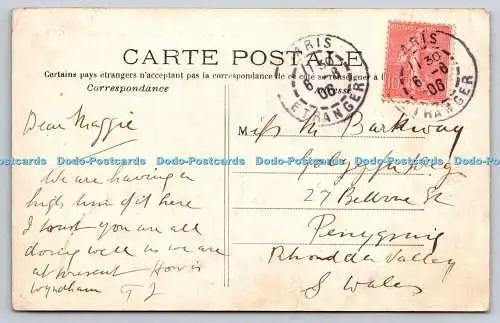 CARTE POSTALE
Certains pays etrangers n'acceptent pas la correspondance de ce côté se renseigner à la
Correspondance
Adresse
PARIS
ETRANGER
6 - 8
06
PARIS
30
6 - 8
06
ETRANGER
10
Dear Maggie
We are having a
high time of it here
I trust you are all
doing well as we are
at present How is
Wyndham
Miss M Barkway
27 Bellvue St
Penygraig
Rhondda Valley
S Wales
Dodo-Postcards Dodo-Postcards Dodo-Postcards Dodo-Postcards Dodo-Postcards Dodo-Postcards